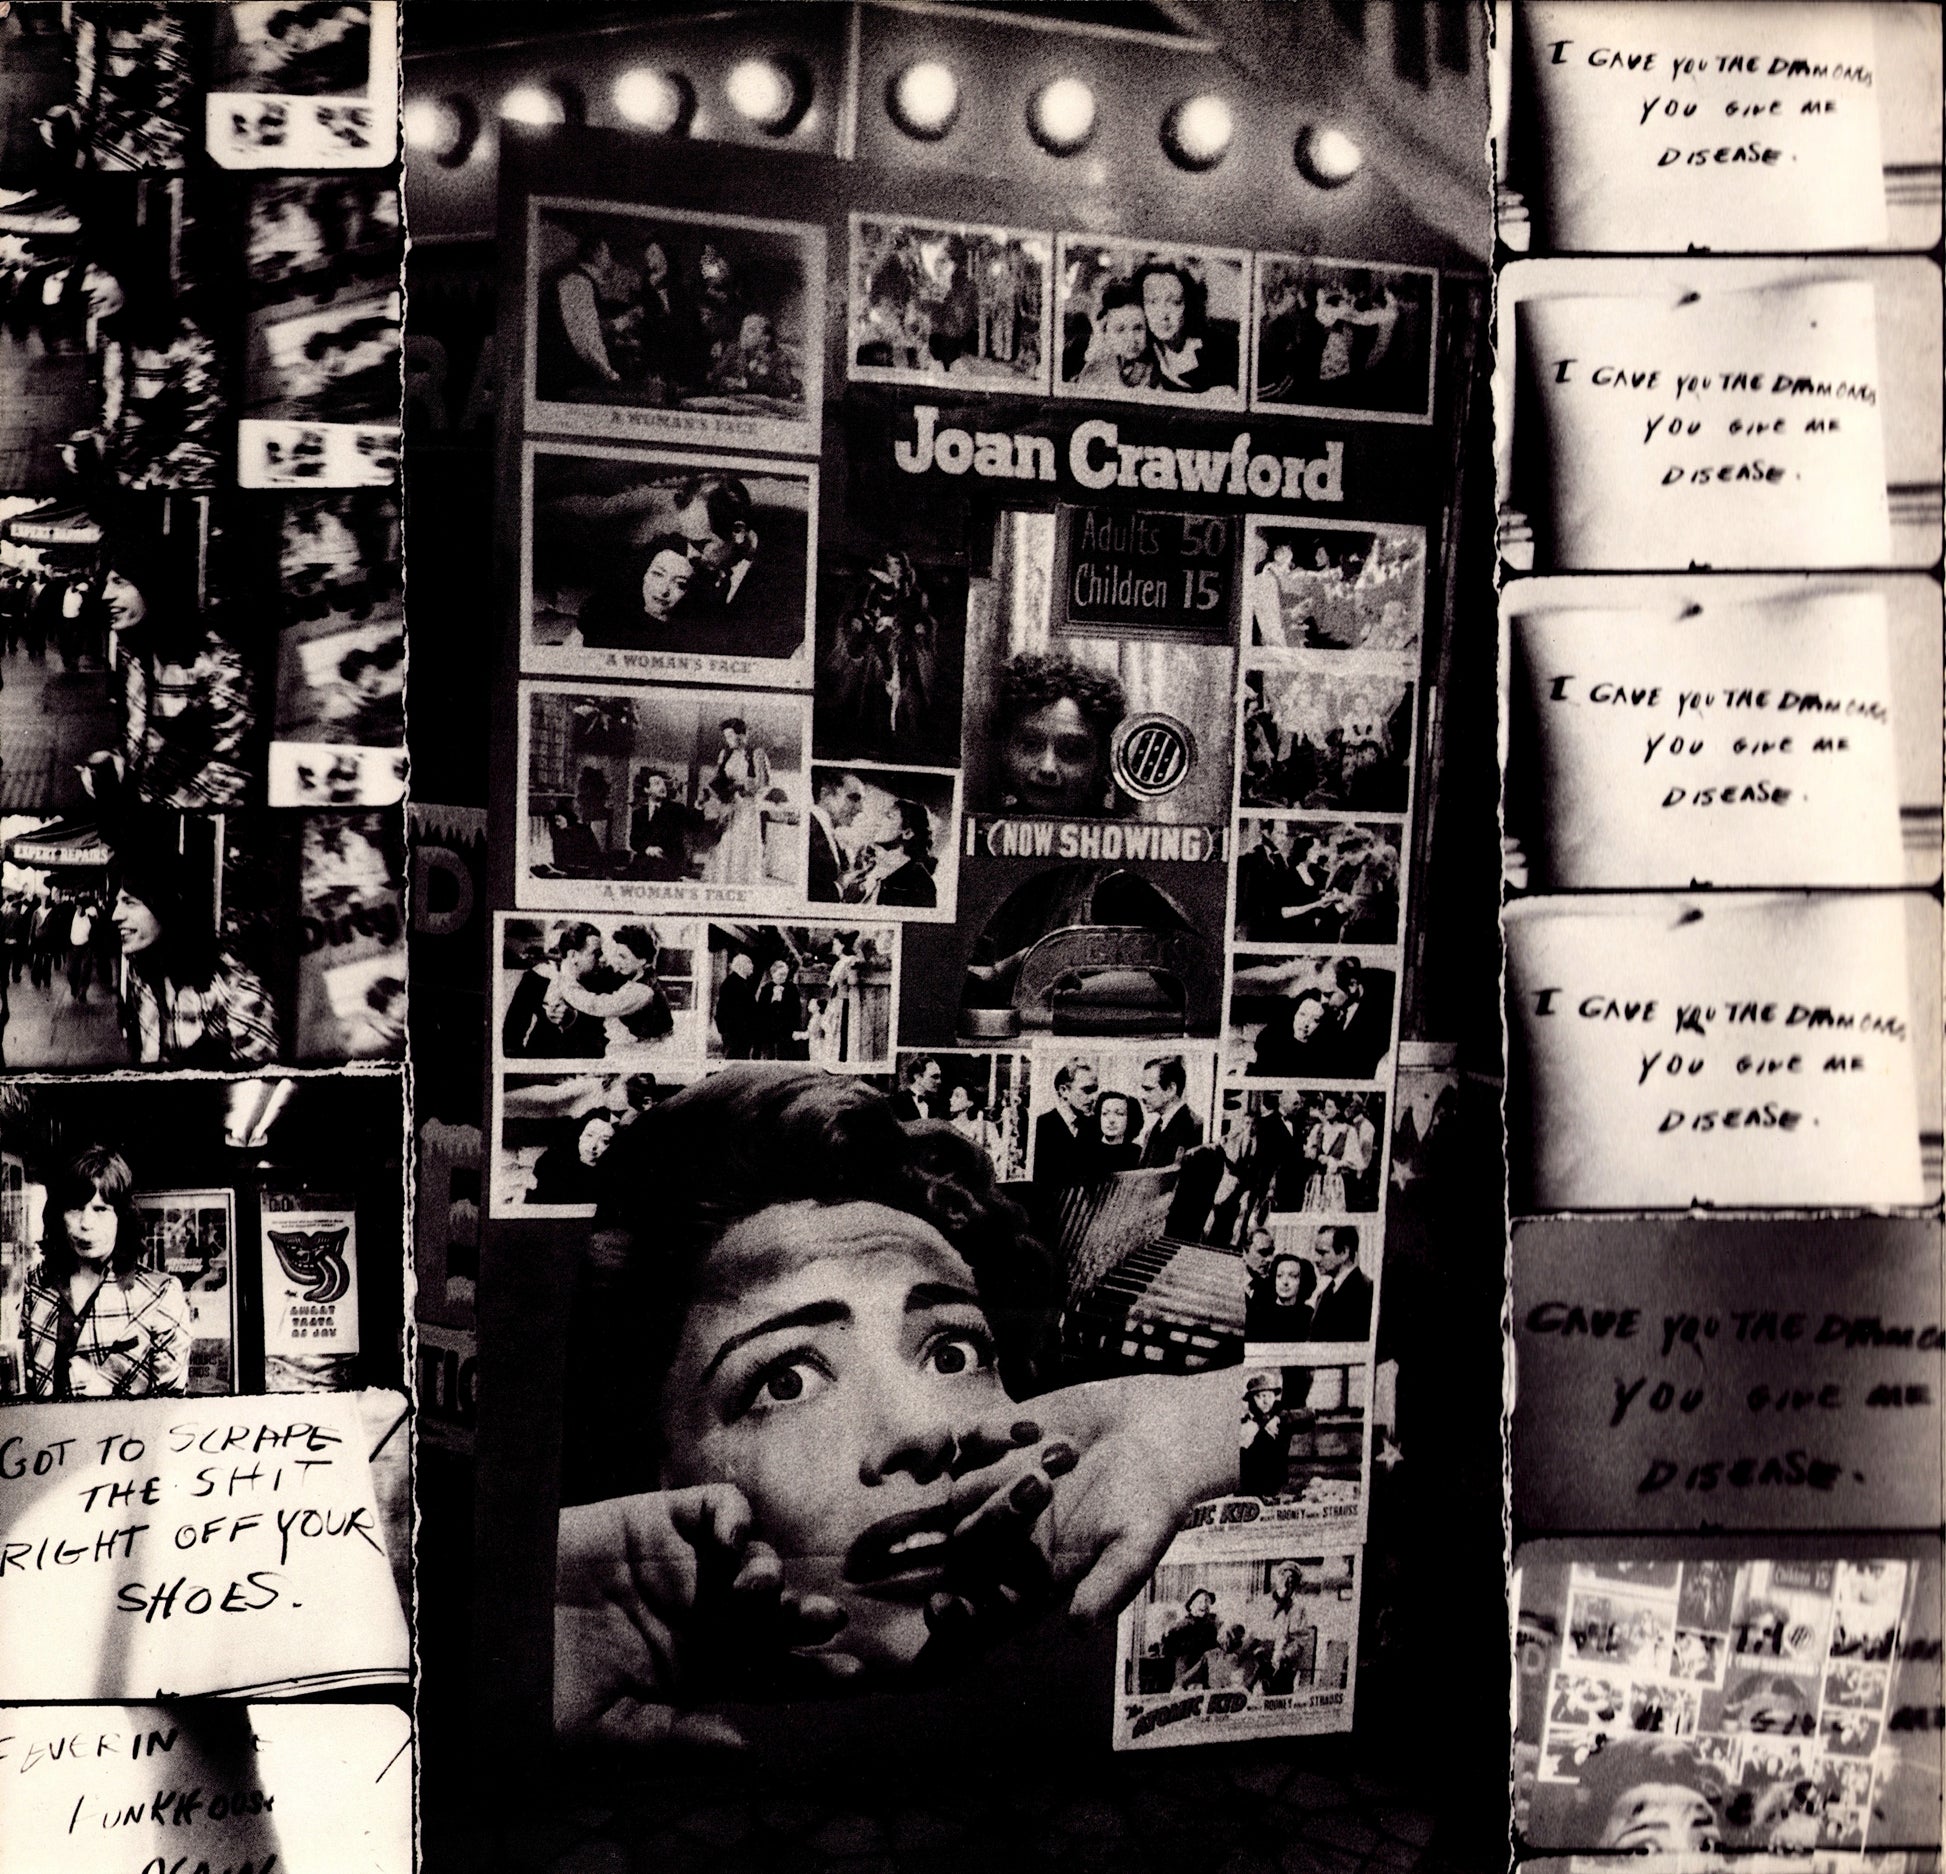 EXPERT REPAIRS
EXPERT REPAIRS
GOT TO SCRAPE
THE SHIT
RIGHT OFF YOUR
SHOES.
FEVER IN
FUNKHOUSE
AGAIN
A WOMAN'S FACE
Joan Crawford
Adults 50
Children 15
"A WOMAN'S FACE"
(NOW SHOWING)
"A WOMAN'S FACE"
ATOMIC KID
ROONEY STRAUSS
The ATOMIC KID
ROONEY STRAUSS
I GAVE YOU THE DIAMONDS
YOU GIVE ME
DISEASE.
I GAVE YOU THE DIAMONDS
YOU GIVE ME
DISEASE.
I GAVE YOU THE DIAMONDS
YOU GIVE ME
DISEASE.
I GAVE YOU THE DIAMONDS
YOU GIVE ME
DISEASE.
GAVE YOU THE DIAMO
YOU GIVE ME
DISEASE.
Children 15